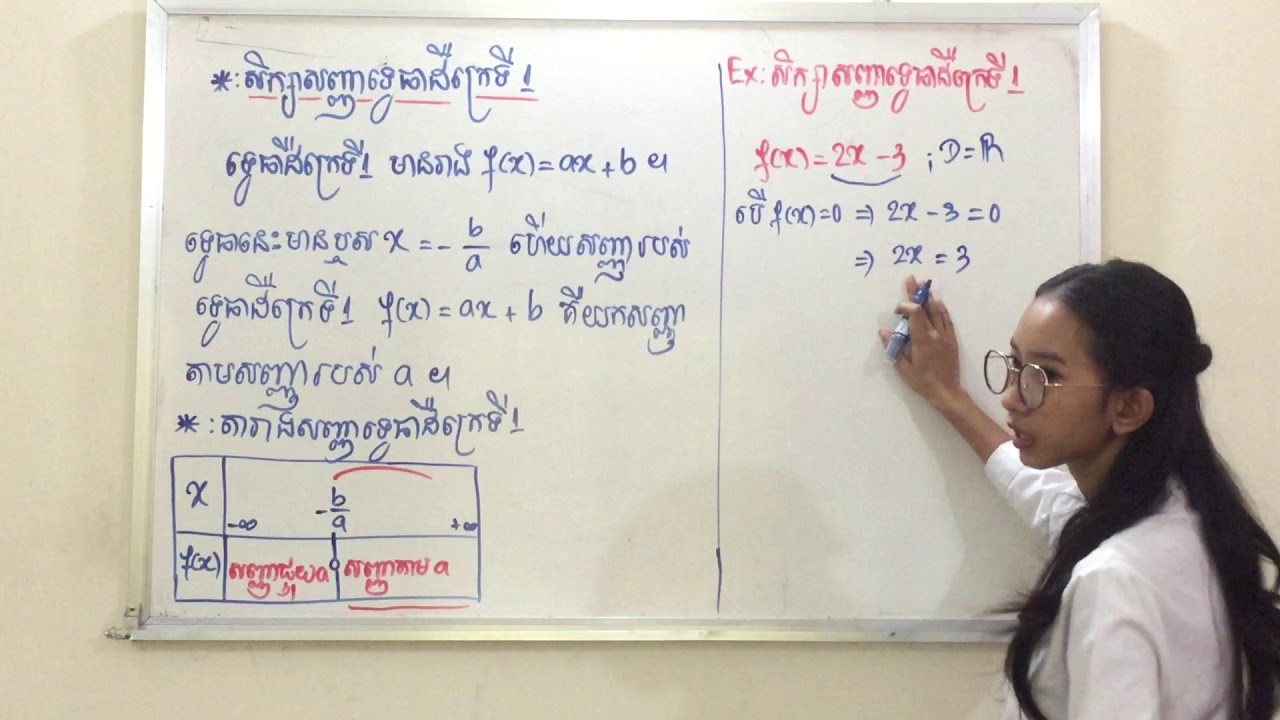 *: សិក្សាសញ្ញាទ្វេធាដឺក្រេទី 1
ទ្វេធាដឺក្រេទី1 មានរាង f(x) = ax + b ។
ទ្វេធានេះមានឬស x = - b/a ហើយសញ្ញារបស់
ទ្វេធាដឺក្រេទី1 f(x) = ax + b គឺយកសញ្ញា
តាមសញ្ញារបស់ a ។
*: តារាងសញ្ញាទ្វេធាដឺក្រេទី 1
x -∞ - b/a +∞
f(x) សញ្ញាផ្ទុយa 0 សញ្ញាតាម a
Ex: សិក្សាសញ្ញាទ្វេធាដឺក្រេទី 1
f(x) = 2x - 3 ; D = ℝ
បើ f(x) = 0 ⇒ 2x - 3 = 0
⇒ 2x = 3